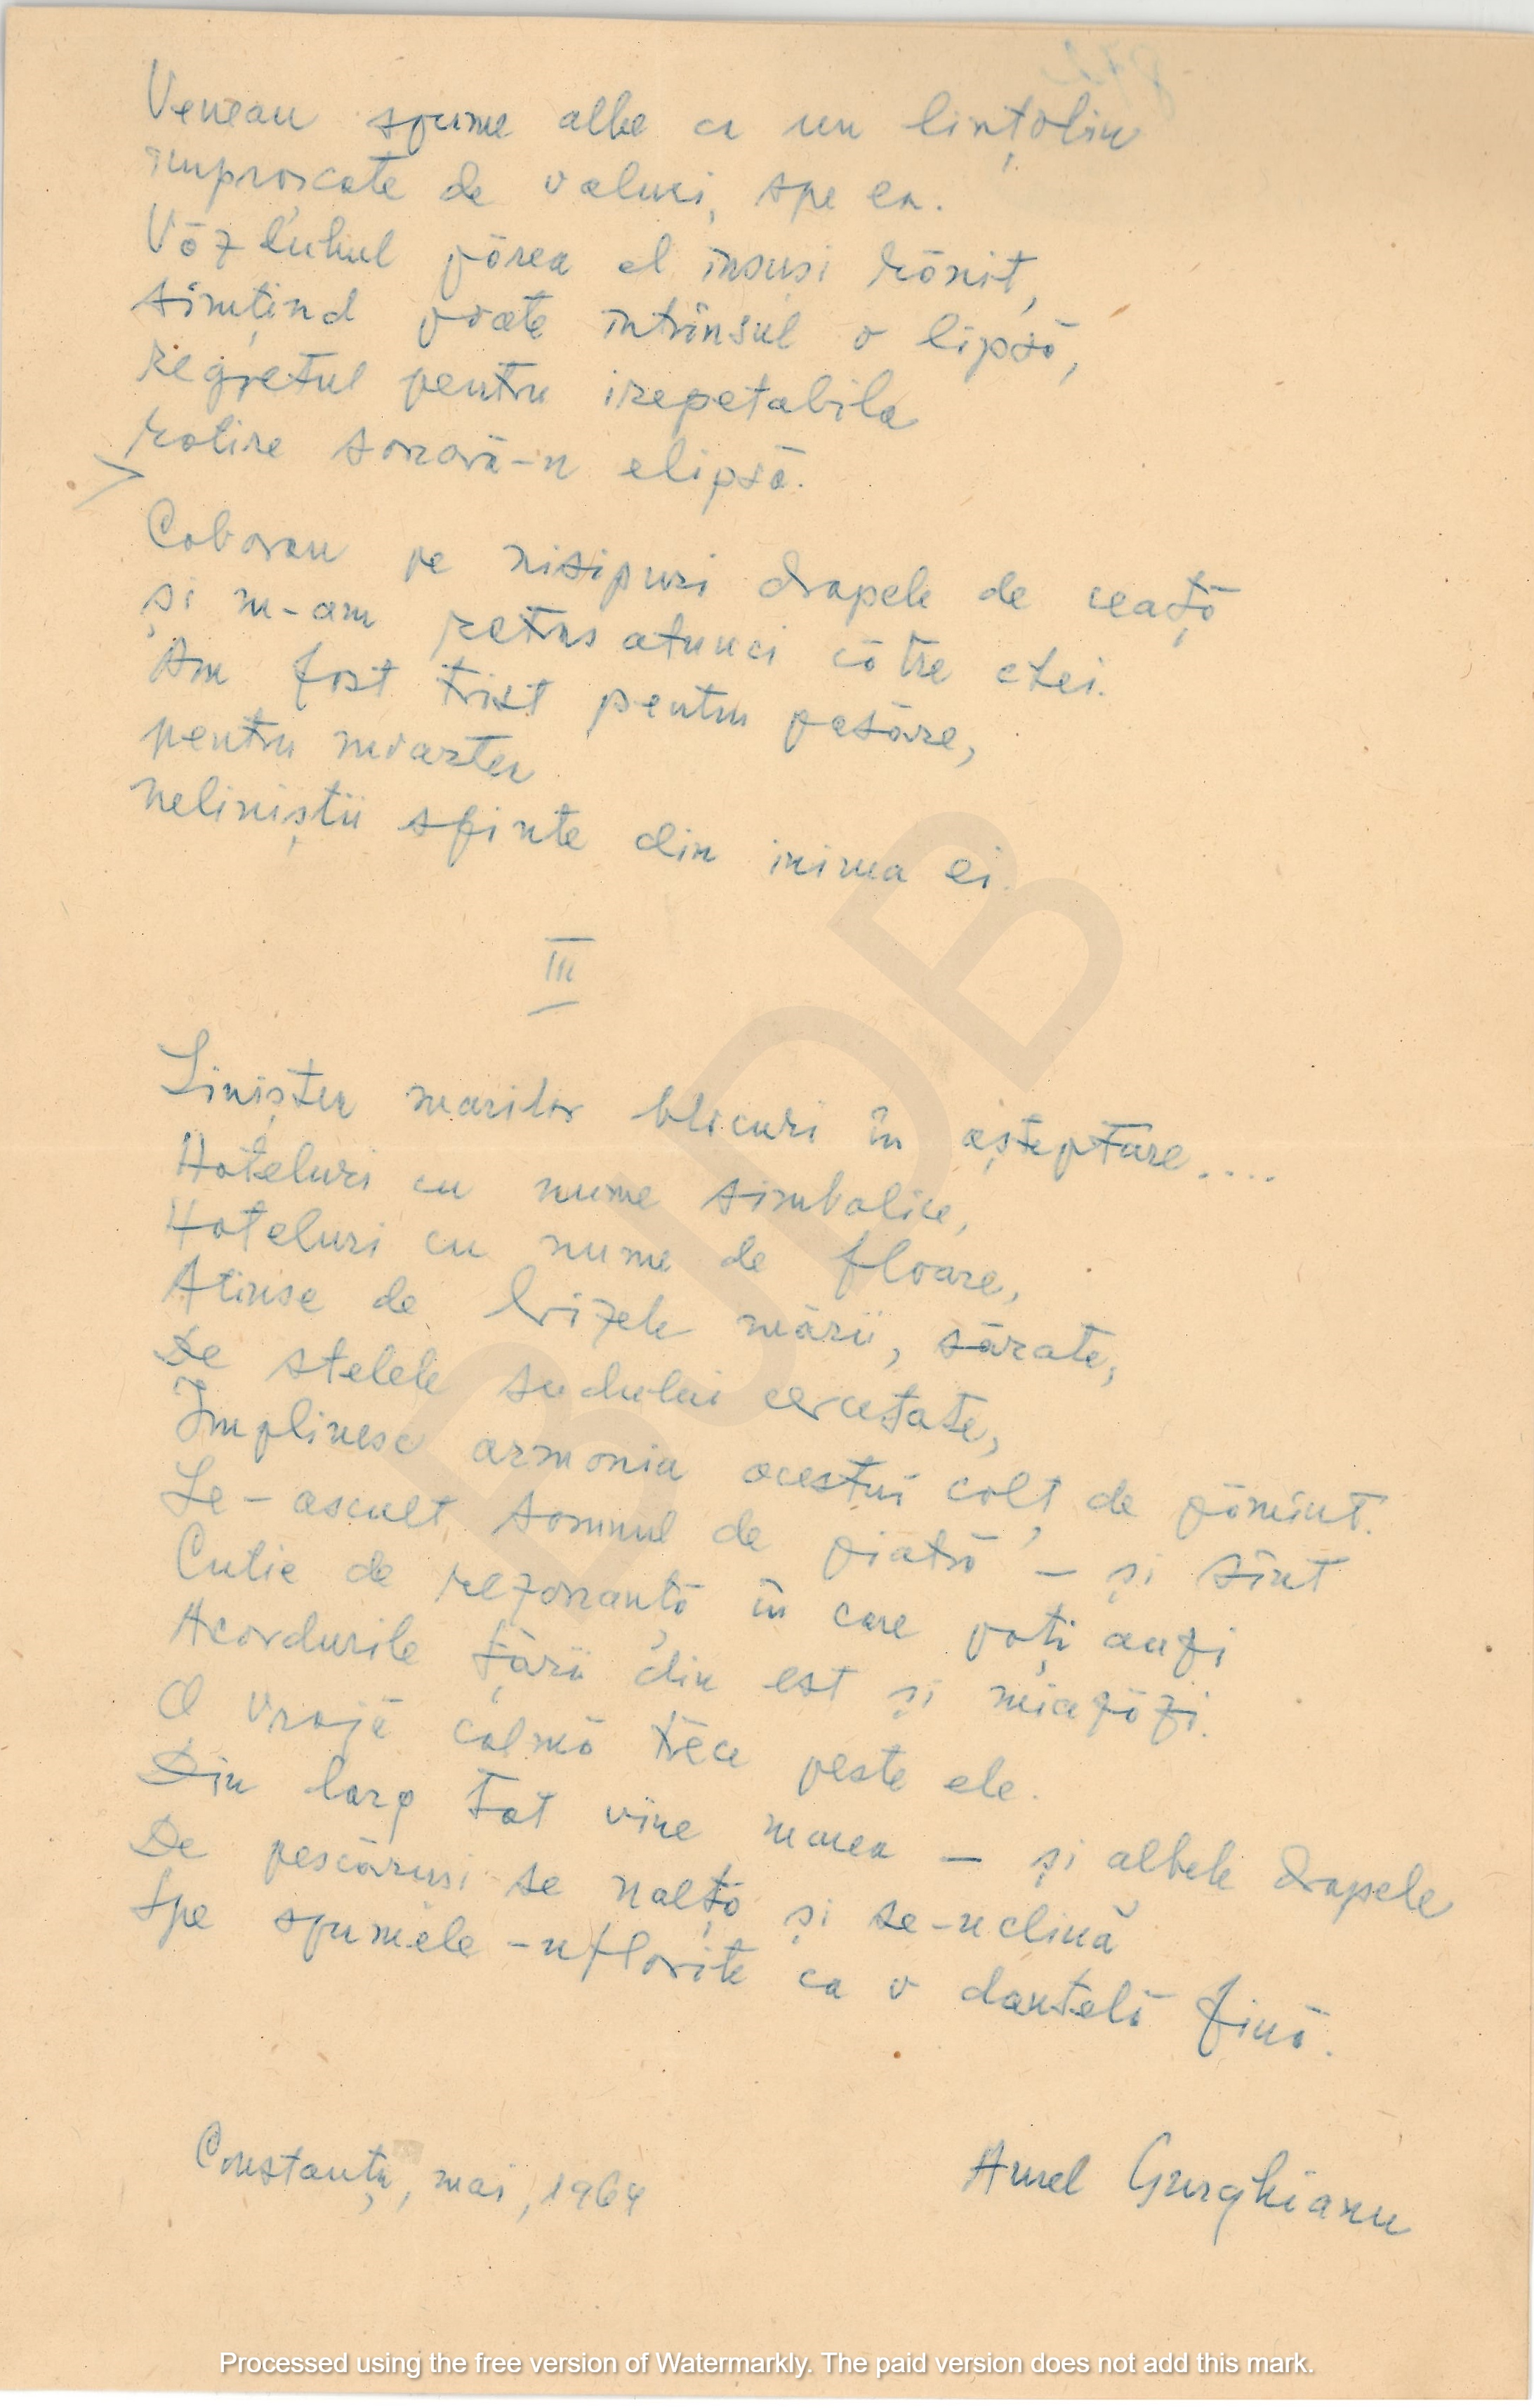 Veneau spume albe ca un linţoliu
împroşcate de valuri, spre ea.
Văzduhul părea el însuşi rănit,
simţind poate întrînsul o lipsă,
regretul pentru irepetabila
rotire sonoră-n elipsă.
>
Coborau pe nisipuri drapele de ceaţă
şi m-am retras atunci către alei.
Am fost trist pentru pasăre,
pentru moartea
neliniştii sfinte din inima ei.
III
Liniştea marilor blocuri în aşteptare....
Hoteluri cu nume simbolice,
Hoteluri cu nume de floare,
Atinse de brizele mării, sărate,
De stelele sudului cercetate,
Împlinesc armonia acestui colţ de pămînt.
Le-ascult somnul de piatră – şi sînt
Cutie de rezonanţă în care poţi auzi
Acordurile ţării din est şi miazăzi.
O vrajă calmă trece peste ele.
Din larg tot vine marea – şi albele drapele
De pescăruşi se nalţă şi se-nclină
Spre spumele-nflorite ca o dantelă fină.
Constanţa, mai, 1964
Aurel Gurghianu
BJDB
Processed using the free version of Watermarkly. The paid version does not add this mark.